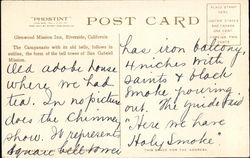 "PHOSTINT"
POST CARD
PLACE STAMP HERE
Glenwood Mission Inn, Riverside, California
The Campanario with its old bells, follows in outline, the form of the bell tower of San Gabriel Mission.
Old adobe house
where we had
tea. In no picture
does the chimney
show. It represents
square bell tower
has iron balcony,
4 niches with
Saints & black
smoke pouring
out. The guide said
"Here we have
Holy Smoke"
THIS SPACE FOR THE ADDRESS